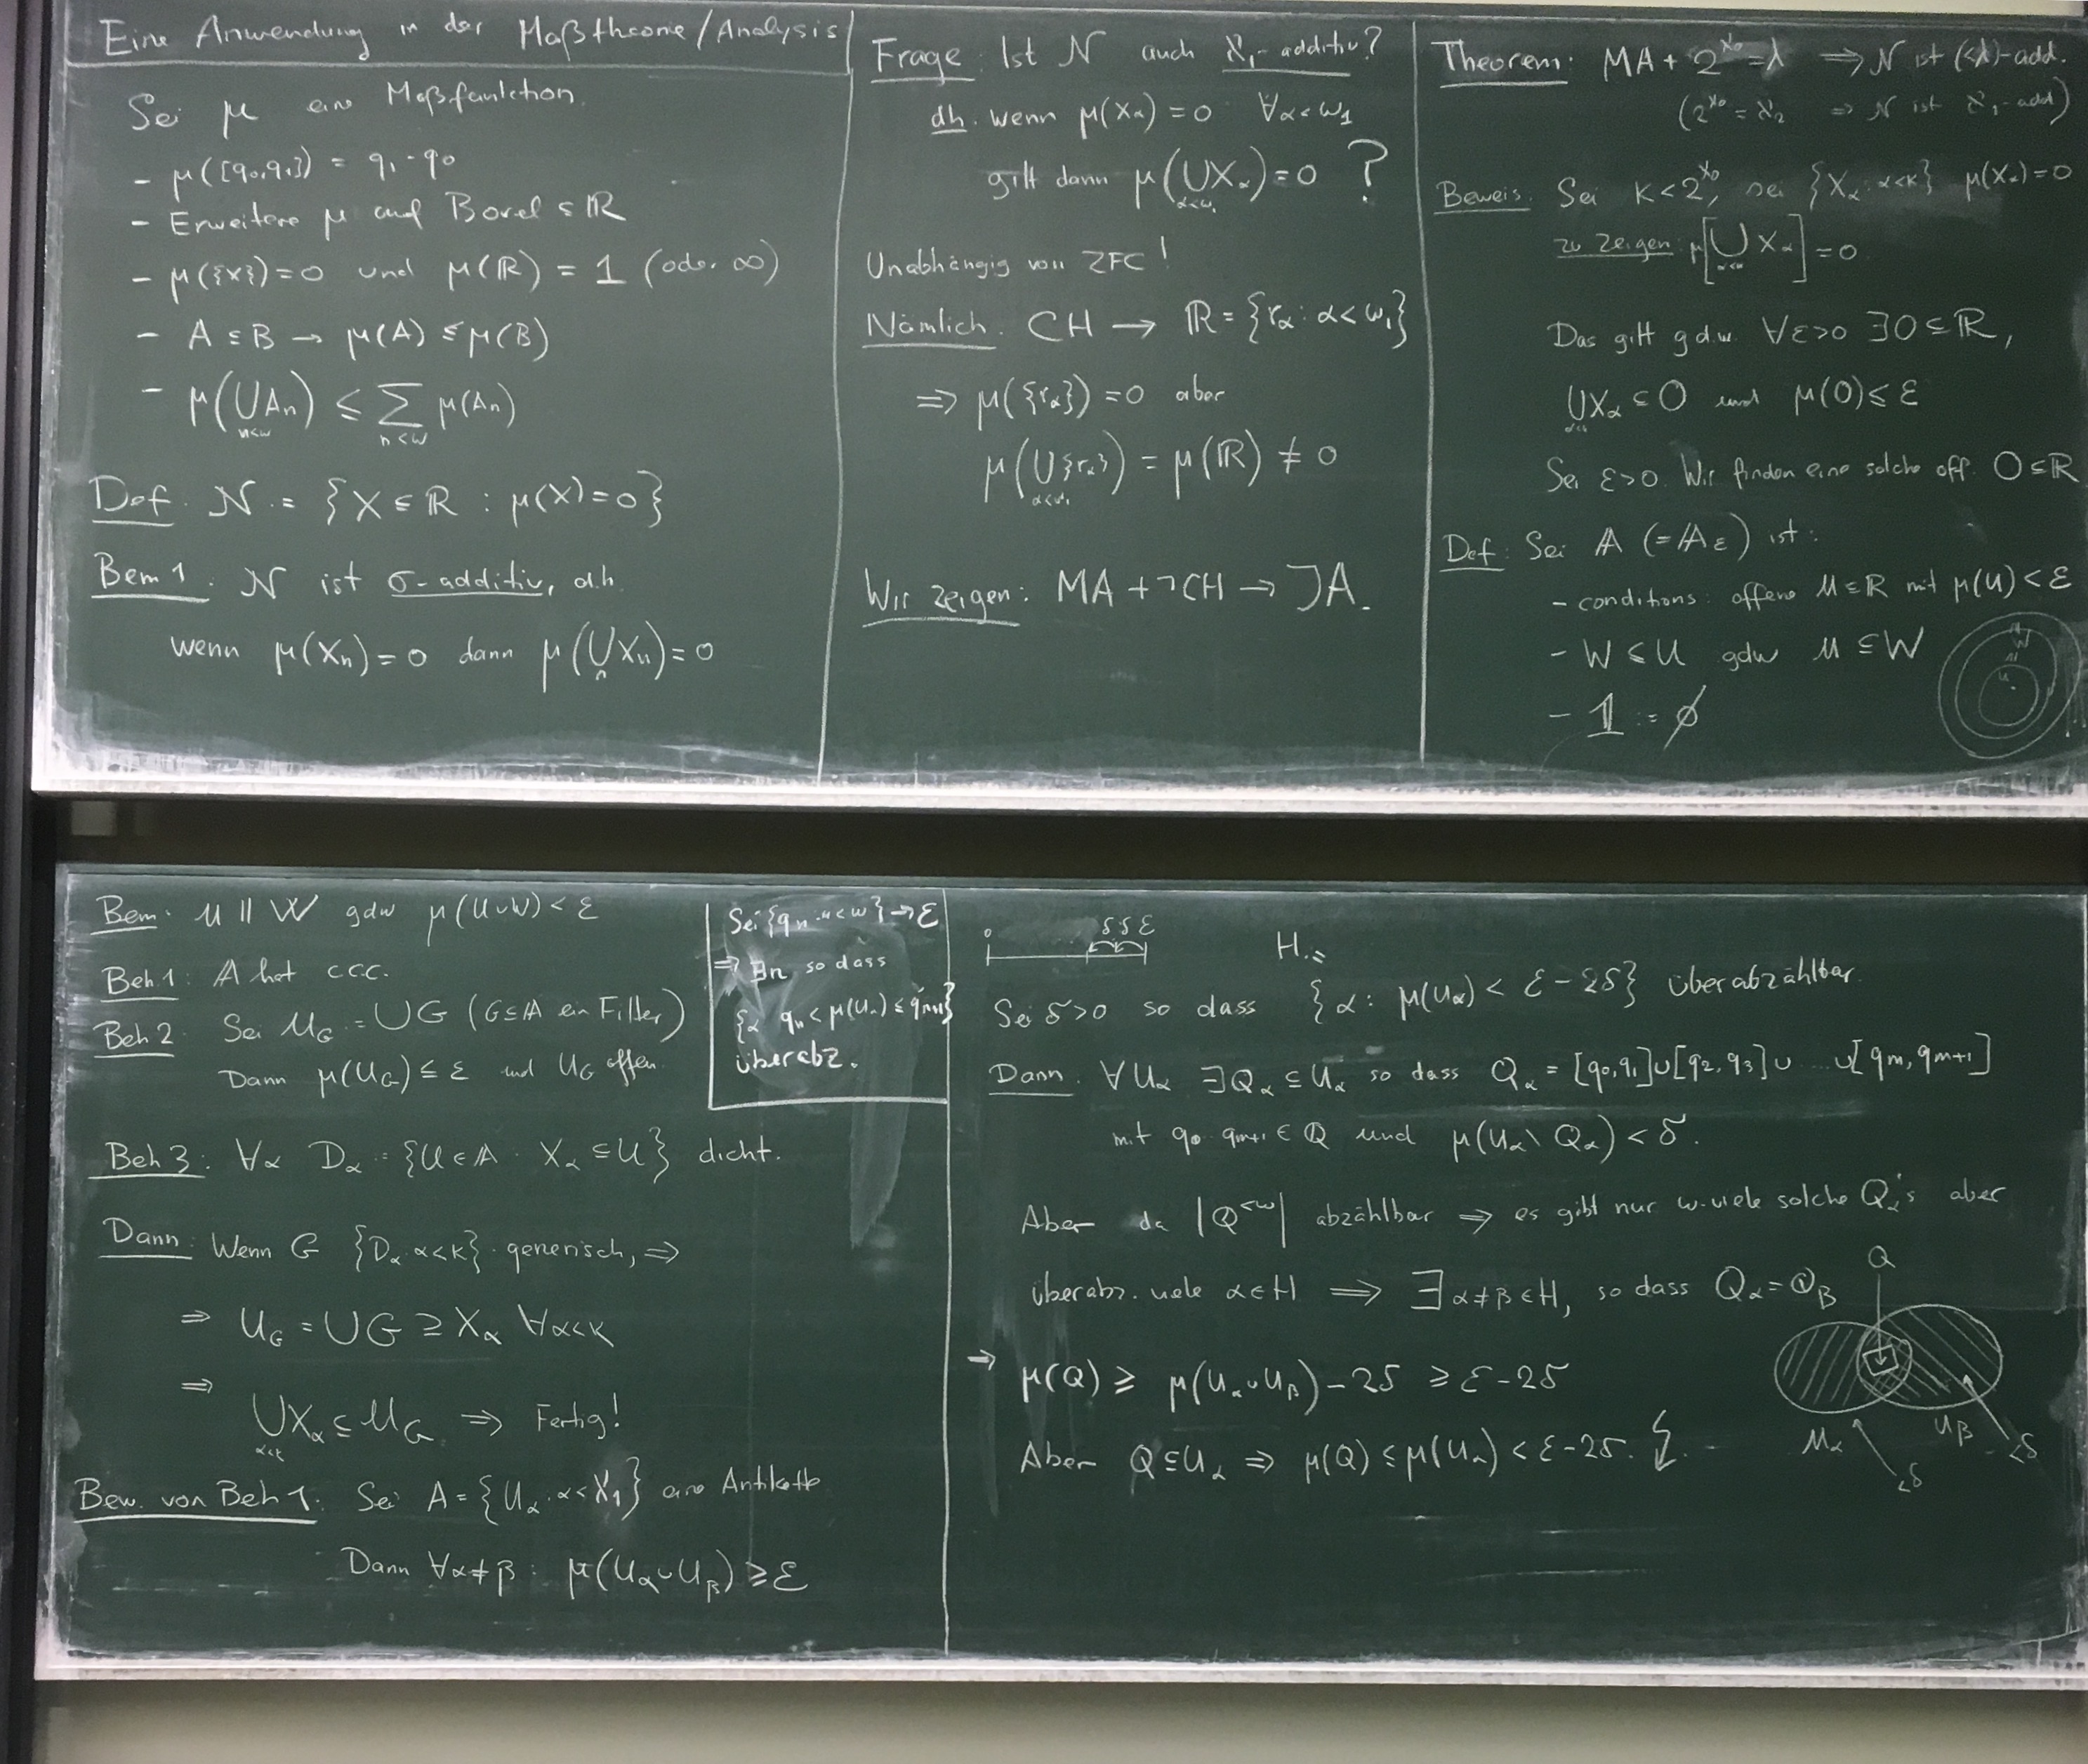 Eine Anwendung in der Maßtheorie/Analysis
Sei μ eine Maßfunktion.
- μ([q₀,q₁]) = q₁-q₀
- Erweitere μ auf Borel ⊆ ℝ
- μ({x})=0 und μ(ℝ) = 1 (oder ∞)
- A ⊆ B → μ(A) ≤ μ(B)
- μ(⋃_{n<ω} Aₙ) ≤ ∑_{n<ω} μ(Aₙ)
Def. 𝒩 := {X ⊆ ℝ : μ(X)=0}
Bem 1. 𝒩 ist σ-additiv, d.h.
wenn μ(Xₙ)=0 dann μ(⋃ₙ Xₙ)=0
Frage: Ist 𝒩 auch ℵ₁-additiv?
dh. wenn μ(X_α)=0 ∀α<ω₁
gilt dann μ(⋃_{α<ω₁} X_α)=0 ?
Unabhängig von ZFC!
Nämlich. CH → ℝ = {r_α : α<ω₁}
⇒ μ({r_α})=0 aber
μ(⋃_{α<ω₁} {r_α}) = μ(ℝ) ≠ 0
Wir zeigen: MA + ¬CH → JA.
Theorem: MA + 2^{ℵ₀}=λ ⇒ 𝒩 ist (<λ)-add.
(2^{ℵ₀} = ℵ₂ ⇒ 𝒩 ist ℵ₁-add)
Beweis. Sei κ<2^{ℵ₀}, sei {X_α : α<κ} μ(X_α)=0
zu zeigen: μ[⋃_{α<κ} X_α]=0
Das gilt gdw. ∀ε>0 ∃O⊆ℝ,
⋃_{α<κ} X_α ⊆ O und μ(O) ≤ ε
Sei ε>0. Wir finden eine solche off. O⊆ℝ
Def: Sei 𝔸 (=𝔸_ε) ist:
- conditions: offene U⊆ℝ mit μ(U)<ε
- W ≤ U gdw U ⊆ W
- 𝟙 := ∅
W
U
U
Bem. U ∥ W gdw μ(U∪W)<ε
Beh 1: 𝔸 hat c.c.c.
Beh 2. Sei U_G := ⋃G (G⊆𝔸 ein Filter)
Dann μ(U_G) ≤ ε und U_G offen.
Beh 3: ∀α D_α = {U∈𝔸 : X_α ⊆ U} dicht.
Dann: Wenn G {D_α : α<κ}-generisch, ⇒
⇒ U_G = ⋃G ⊇ X_α ∀α<κ
⇒ ⋃_{α<κ} X_α ⊆ U_G ⇒ Fertig!
Bew. von Beh 1. Sei A={U_α : α<ℵ₁} eine Antikette
Dann ∀α≠β : μ(U_α∪U_β) ≥ ε
Sei {qₙ : n<ω} → ε
⇒ ∃n so dass
{α : qₙ < μ(U_α) ≤ qₙ₊₁}
überabz.
0 δ δ ε
H:=
Sei δ>0 so dass {α : μ(U_α) < ε-2δ} überabzählbar.
Dann. ∀U_α ∃Q_α ⊆ U_α so dass Q_α = [q₀,q₁]∪[q₂,q₃]∪ … ∪[q_m, q_{m+1}]
mit q₀...q_{m+1} ∈ ℚ und μ(U_α \ Q_α) < δ.
Aber da |ℚ^{<ω}| abzählbar ⇒ es gibt nur ω-viele solche Q_α's aber
überabz. viele α∈H ⟹ ∃α≠β∈H, so dass Q_α=Q_β
⇒ μ(Q) ≥ μ(U_α∪U_β)-2δ ≥ ε-2δ
Aber Q⊆U_α ⇒ μ(Q) ≤ μ(U_α) < ε-2δ. ↯.
Q
U_α
U_β
<δ
<δ